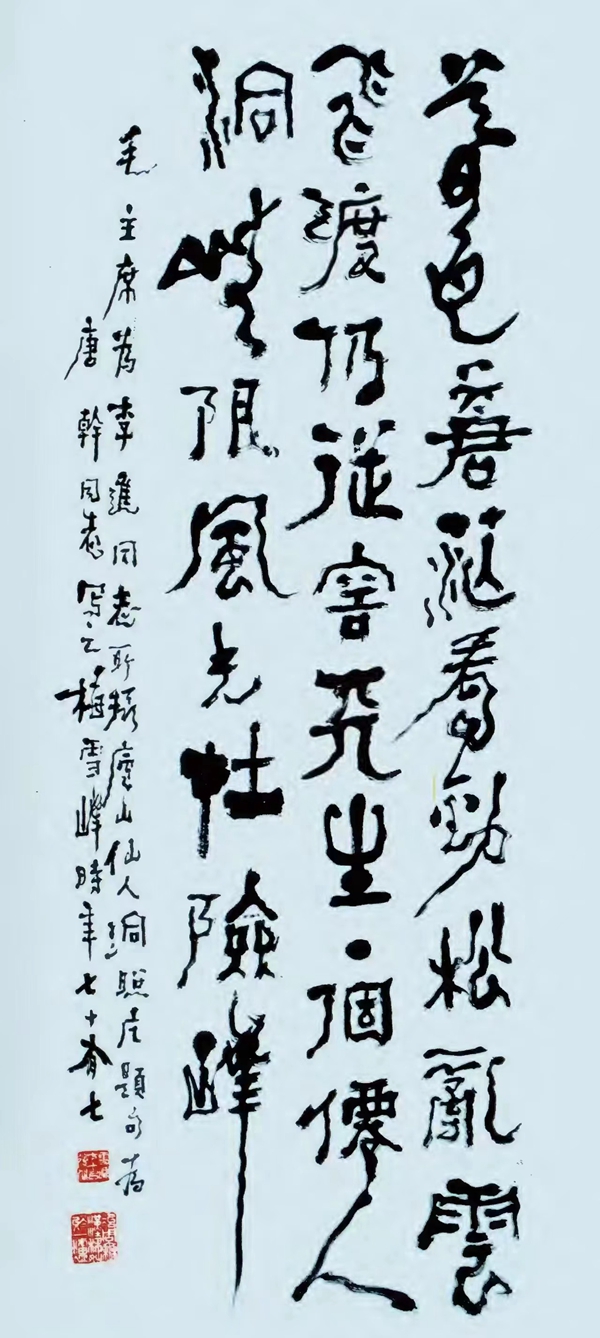 暮色蒼茫看勁松亂雲
飛渡仍從容天生一個僊人
洞無限風光在險峰
毛主席為李進同志所攝廬山仙人洞照片題句為
唐幹同志寫之梅雪峰時年七十有七